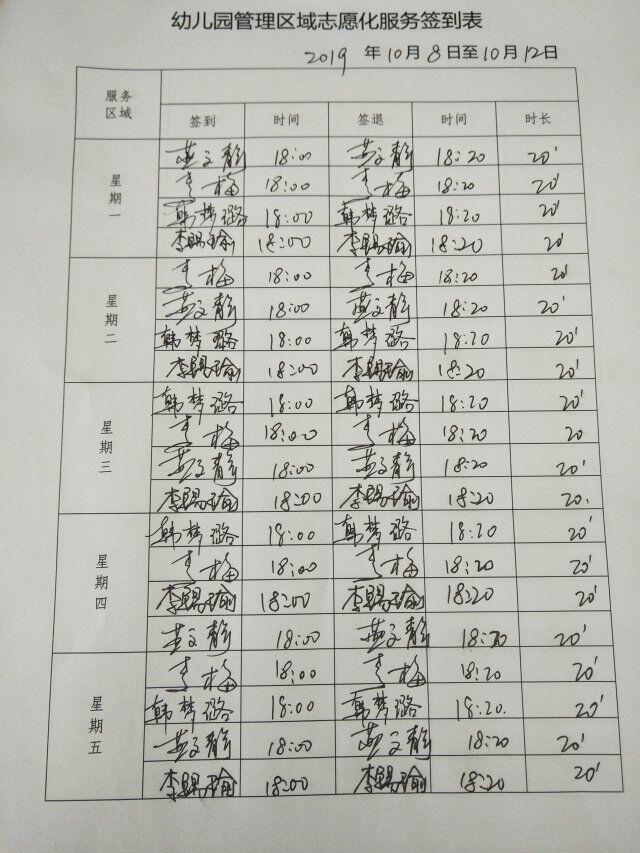 幼儿园管理区域志愿化服务签到表
2019 年10月8日至10月12日
服务区域
签到 时间 签退 时间 时长
星期一
18:00 18:20 20'
李梅 18:00 李梅 18:20 20'
韩梦璐 18:00 韩梦璐 18:20 20'
李赐瑜 18:00 李赐瑜 18:20 20'
星期二
李梅 18:00 李梅 18:20 20'
18:00 18:20 20'
韩梦璐 18:00 韩梦璐 18:20 20'
李赐瑜 18:00 李赐瑜 18:20 20'
星期三
韩梦璐 18:00 韩梦璐 18:20 20'
李梅 18:00 李梅 18:20 20
18:00 18:20 20'
李赐瑜 18:00 李赐瑜 18:20 20.
星期四
韩梦璐 18:00 韩梦璐 18:20 20'
李梅 18:00 李梅 18:20 20'
李赐瑜 18:00 李赐瑜 18:20 20'
18:00 18:20 20'
星期五
李梅 18:00 李梅 18:20 20'
韩梦璐 18:00 韩梦璐 18:20. 20'
18:00 18:20 20'
李赐瑜 18:00 李赐瑜 18:20 20'